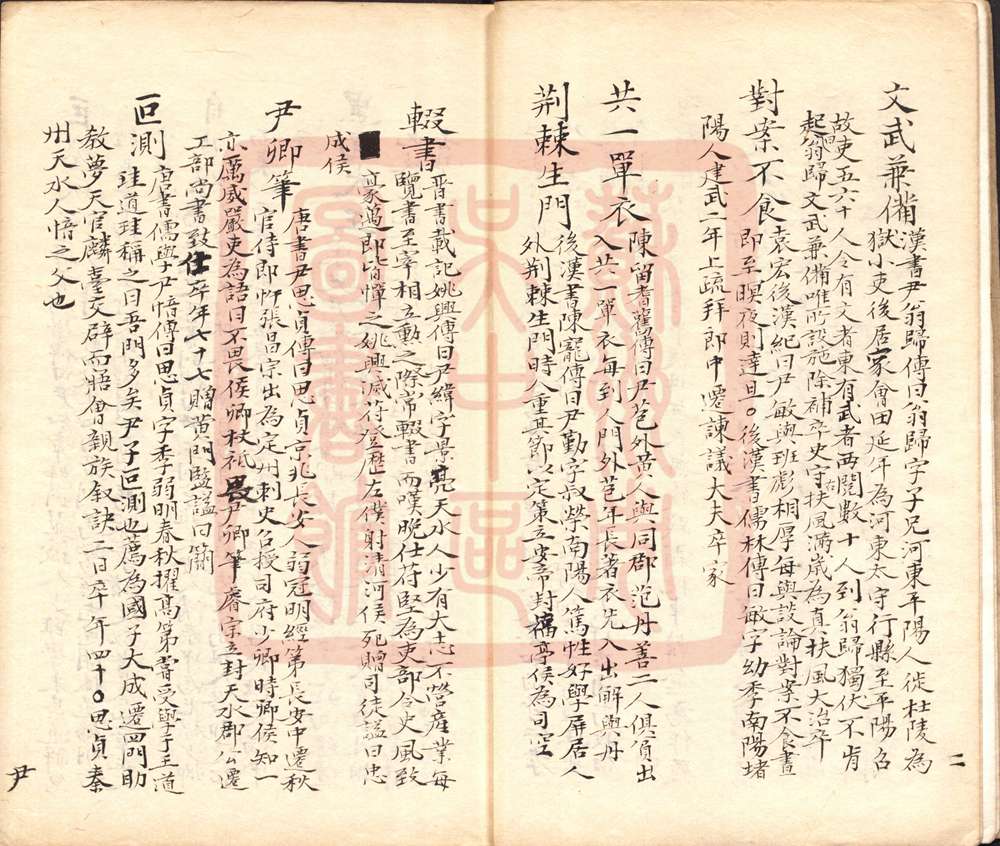 文武兼備 漢書尹翁歸傳曰翁歸字子兄河東平陽人徙杜陵為
獄小吏後居家會田延年為河東太守行縣至平陽召
故吏五六十人令有文者東有武者西閱數十人到翁歸獨伏不肯
起翁歸文武兼備唯所設施除補卒史守右扶風滿歲為真扶風大治卒
家
對案不食 袁宏後漢紀曰尹敏與班彪相厚每與談論對案不食晝
即至暝夜則達旦○後漢書儒林傳曰敏字幼季南陽堵
陽人建武二年上疏拜郎中遷諫議大夫卒家
共一單衣 陳留耆舊傳曰尹苞外黃人與同郡范丹善二人俱貧出
入共一單衣每到人門外苞年長著衣先入出解與丹
荆棘生門 後漢書陳寵傳曰尹勤字叔榮南陽人篤性好學屏居人
外荆棘生門時人重其節以定策立安帝封福亭侯為司空
二
輟書 晉書載記姚興傳曰尹緯字景亮天水人少有大志不營産業每
覽書至宰相立勳之際常輟書而嘆晚仕苻堅為吏部令史風致
豪邁郎皆憚之姚興滅苻登歷左僕射清河侯死贈司徒謚曰忠
成侯
尹卿筆 唐書尹思貞傳曰思貞京兆長安人弱冠明經第長安中遷秋
官侍郎忤張昌宗出為定州刺史召授司府少卿時卿侯知一
亦厲威嚴吏為語曰不畏侯卿杖祗畏尹卿筆睿宗立封天水郡公遷
工部尚書致仕卒年七十七贈黃門監謚曰簡
叵測 唐書儒學尹愔傳曰思貞字季弱明春秋擢高第嘗受學于王道
珪道珪稱之曰吾門多矣尹子叵測也薦為國子大成遷四門助
教夢天官麟臺交辟而寤會親族叙訣二日卒年四十○思貞秦
州天水人愔之父也
尹